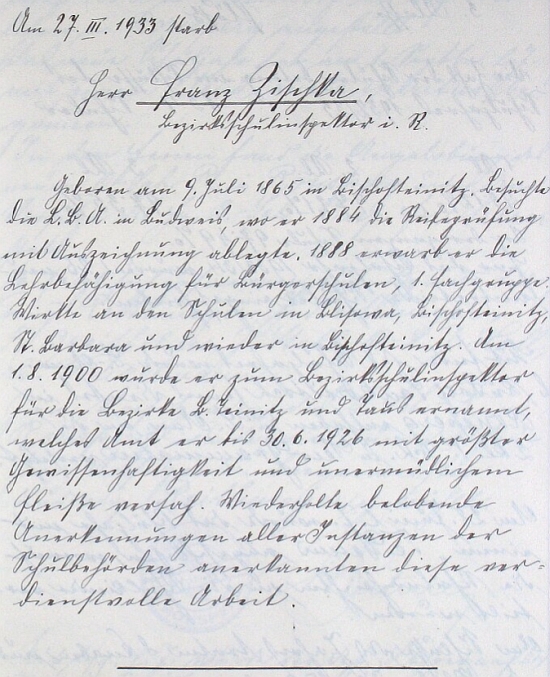 Am 27. III. 1933 starb
Herr Franz Zischka,
Bezirksschulinspektor i. R.
Geboren am 9. Juli 1865 in Bischofteinitz. Besuchte
die L. B. A. in Budweis, wo er 1884 die Reifeprüfung
mit Auszeichnung ablegte. 1888 erwarb er die
Lehrbefähigung für Bürgerschulen, 1. Fachgruppe.
Wirkte an den Schulen in Blisowa, Bischofteinitz,
St. Barbara und wieder in Bischofteinitz. Am
1. 8. 1900 wurde er zum Bezirksschulinspektor
für die Bezirke B. Teinitz und Taus ernannt,
welches Amt er bis 30. 6. 1926 mit größter
Gewissenhaftigkeit und unermüdlichem
Fleiße versah. Wiederholte belobende
Anerkennungen aller Instanzen der
Schulbehörden anerkannten diese ver-
dienstvolle Arbeit.